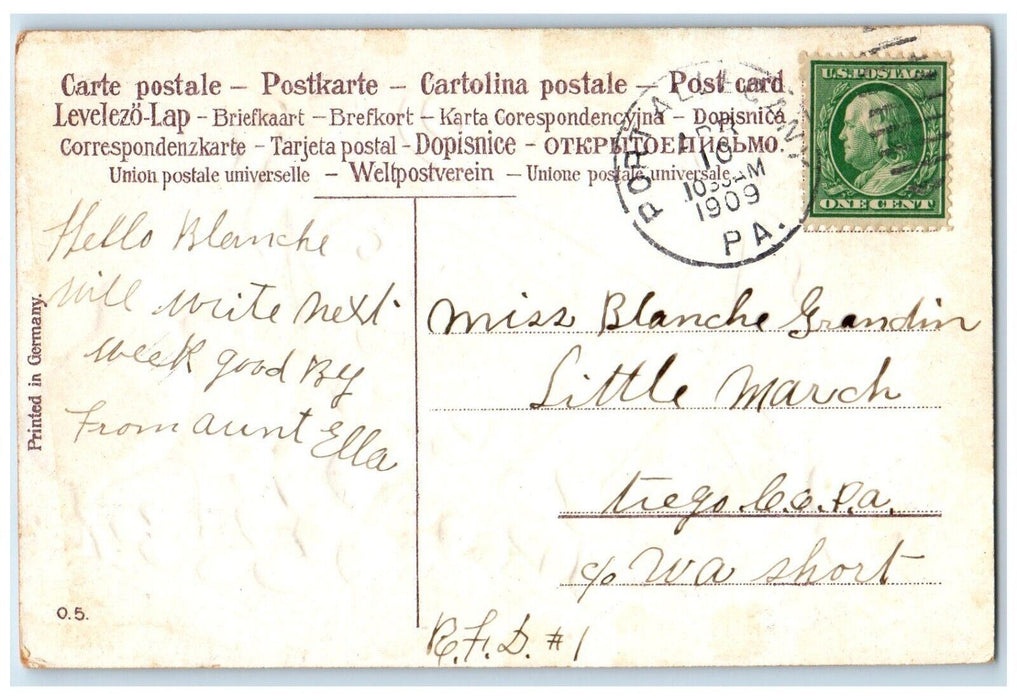 Carte postale – Postkarte – Cartolina postale – Post card
Levelező-Lap – Briefkaart – Brefkort – Karta Corespondencyjna – Dopisnica
Correspondenzkarte – Tarjeta postal – Dopisnice – ОТКРЫТОЕ ПИСЬМО.
Union postale universelle – Weltpostverein – Unione postale universale.
PORT ALLEGANY
APR
10
1030AM
1909
PA.
U.S. POSTAGE
ONE CENT
Hello Blanche
Will write next
week good By
From aunt Ella
Printed in Germany.
O.5.
Miss Blanche Grandin
Little March
tiego Co. Pa.
c/o WA short
R.F.D. #1